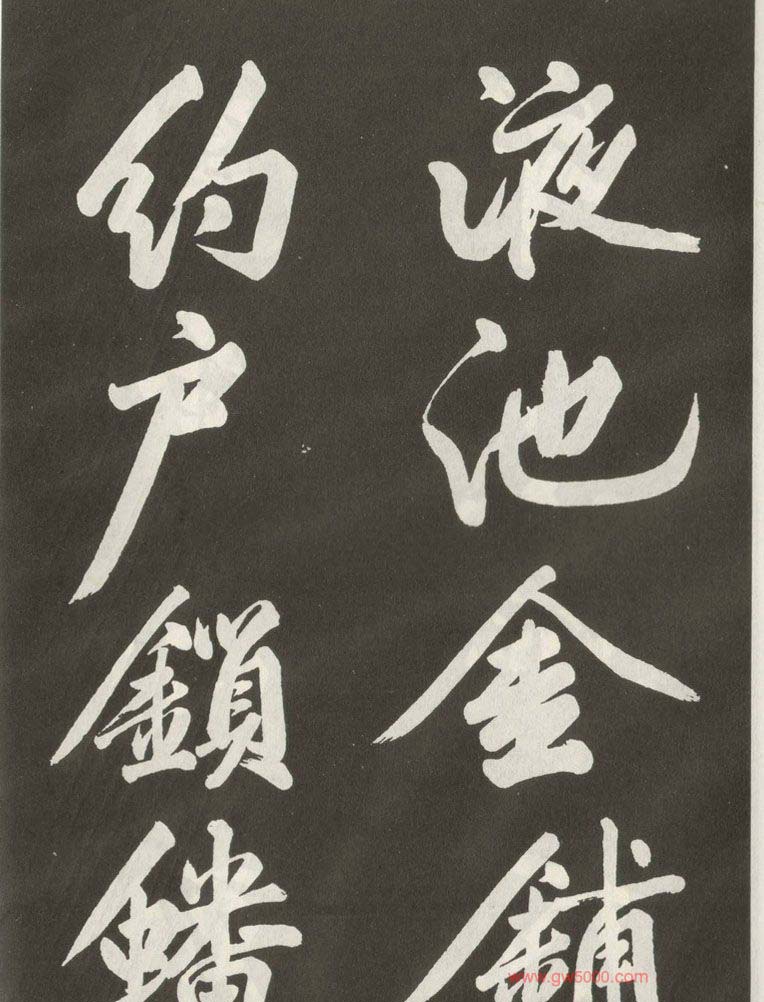 液池金鋪
約户鎖蟠
www.gw5000.com